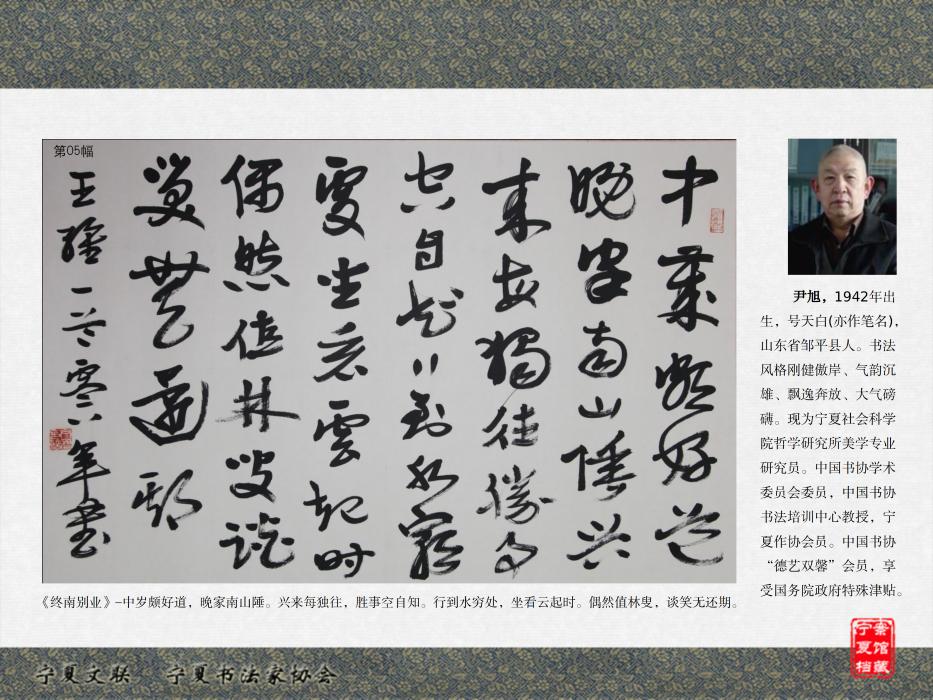 第05幅
中歲頗好道
晚家南山陲兴
来每獨往勝事
空自知行到水窮
處坐看雲起时
偶然值林叟談
笑無還期
王維一首零六年書
《终南别业》–中岁颇好道，晚家南山陲。兴来每独往，胜事空自知。行到水穷处，坐看云起时。偶然值林叟，谈笑无还期。
尹旭，1942年出
生，号天白(亦作笔名)，
山东省邹平县人。书法
风格刚健傲岸、气韵沉
雄、飘逸奔放、大气磅
礴。现为宁夏社会科学
院哲学研究所美学专业
研究员。中国书协学术
委员会委员，中国书协
书法培训中心教授，宁
夏作协会员。中国书协
“德艺双馨”会员，享
受国务院政府特殊津贴。
宁夏文联 宁夏书法家协会
宁夏档案馆藏